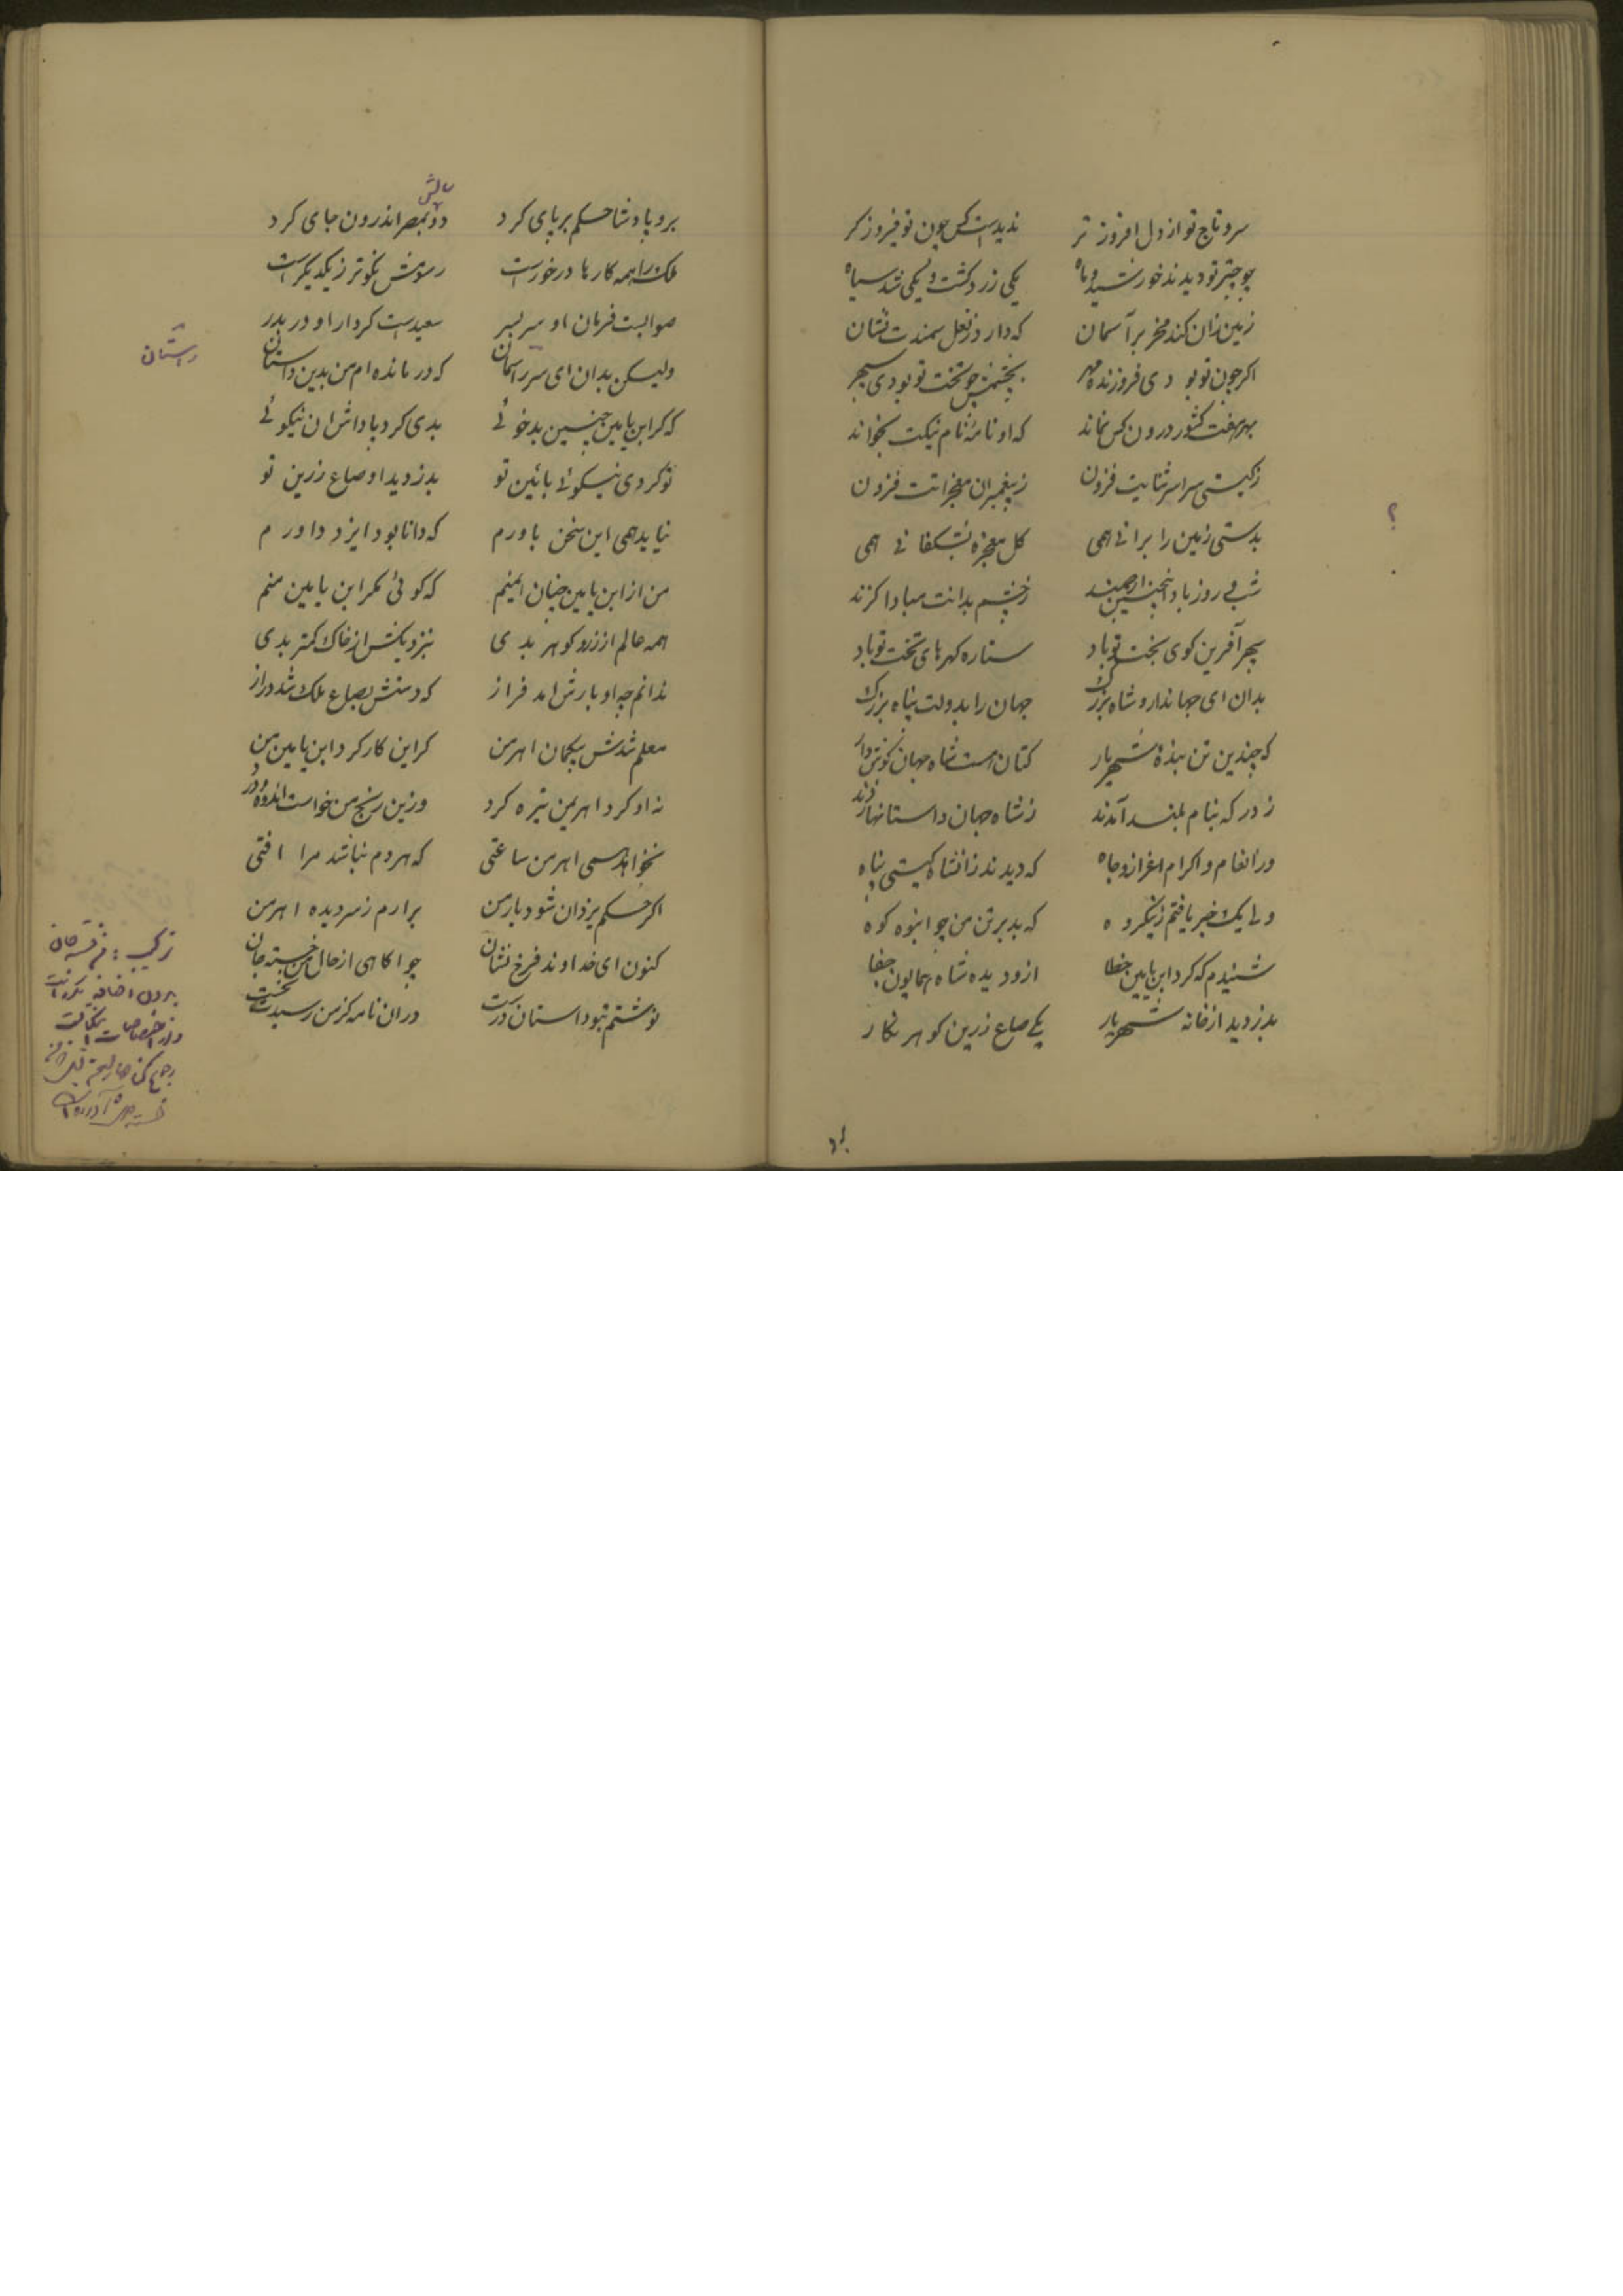 سر و تاج تو از دل افروز تر ندیدست کس چون تو فیروز کر
چو چتر تو دیدند خورشید و ماه یکی زرد کشت و یکی شد سیاه
زمین زان کند فخر بر آسمان که دارد ز نعل سمندت نشان
اکر چون تو بودی فروزنده مهر بچشمش چو تخت تو بودی سپهر
بهر هفت کشور درون کس نماند که او نامهٔ نام نیکت نخواند
ز کیتی سراسر ثنایت فزون ز پیغمبران معجزاتت فزون
بدستی زمین را برانی همی کل معجزه بشکفانی همی
شبی روز باد انچنین ارجمند ز چشم بدانت مبادا کزند
سپهر آفرین کوی بخت تو باد ستاره کهرهای تخت تو باد
بدان ای جهاندار و شاه بزرک جهان را بدولت پناه بزرک
که چندین تن بندهٔ شهریار کتان هست شاه جهان
ز درکه بنام بلند آمدند ز شاه جهان داستانها زدند
ور انعام و اکرام اعزاز و جاه که دیدند زانشاه کیتی پناه
ولی یک خبر یافتم زینکروه که بد بر تن من چو انبوه کوه
شنیدم که کرد ابن یامین خطا ازو دیده شاه همایون جفا
بدزدید از خانه شهریار یکی صاع زرین کوهر نکار
؟
برو
برو پادشا حکم بر پای کرد دو بمصر اندرون جای کرد
سالش
ملک را همه کارها درخورست رسومش نکوتر ز یکدیکرست
صوابست فرمان او سر بسر سعیدست کردار او در بدر
ولیکن بدان ای سر راستان که درمانده ام من بدین داستان
راستان
که کر ابن یامین چنین بدخوئی بدی کرد پاداش ان نیکوئی
تو کردی نیکوئی بآئین تو بدزدید او صاع زرین تو
نیاید همی این سخن باورم که دانا بود ایزد داورم
من از ابن یامین چنان ایمنم که کوئی مکر ابن یامین منم
همه عالم از زر و کوهر بدی بنزدیکش از خاک کمتر بدی
ندانم چه او بارش امد فراز که دستش بصاع ملک شد دراز
معلم شدش بیکمان اهرمن کر این کار کرد ابن یامین من
نه او کرد اهریمن تیره کرد وزین رنج من خواست اندوه و درد
نخواهد همی اهرمن ساعتی که هر دم نباشد مرا افتی
اکر حکم یزدان شود یار من برارم ز سر دیده اهرمن
کنون ای خداوند فرخ نشان چو اکاهی از حال من خسته جان
نوشتم بتو داستان درست دران نامه کز من رسیدت نخست
ترکیب: من خسته جان
بدون اضافه